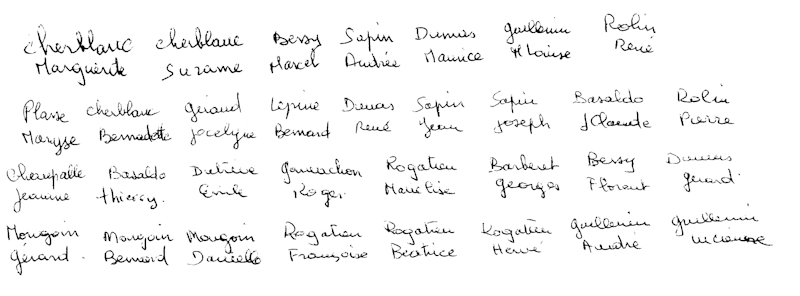 Cherblanc Cherblanc Bessy Sapin Dumas Guillemin Rolin
Marguerite Suzanne Marcel Andrée Maurice M Louise René
Plasse Cherblanc Géraud Lépine Dumas Sapin Sapin Basaldo Rolin
Maryse Bernadette Jocelyne Bernard René Jean Joseph J Claude Pierre
Cherupalle Basaldo Dutrève Ganuchon Rogatien Barberet Bessy Dumas
Jeannine Thierry. Emile Roger. Marielise Georges Florent Gérard.
Mougoin Mougoin Mougoin Rogatien Rogatien Rogatien Guillemin Guillemin
Gérard. Bernard Danielle Françoise Béatrice Hervé André Lucienne